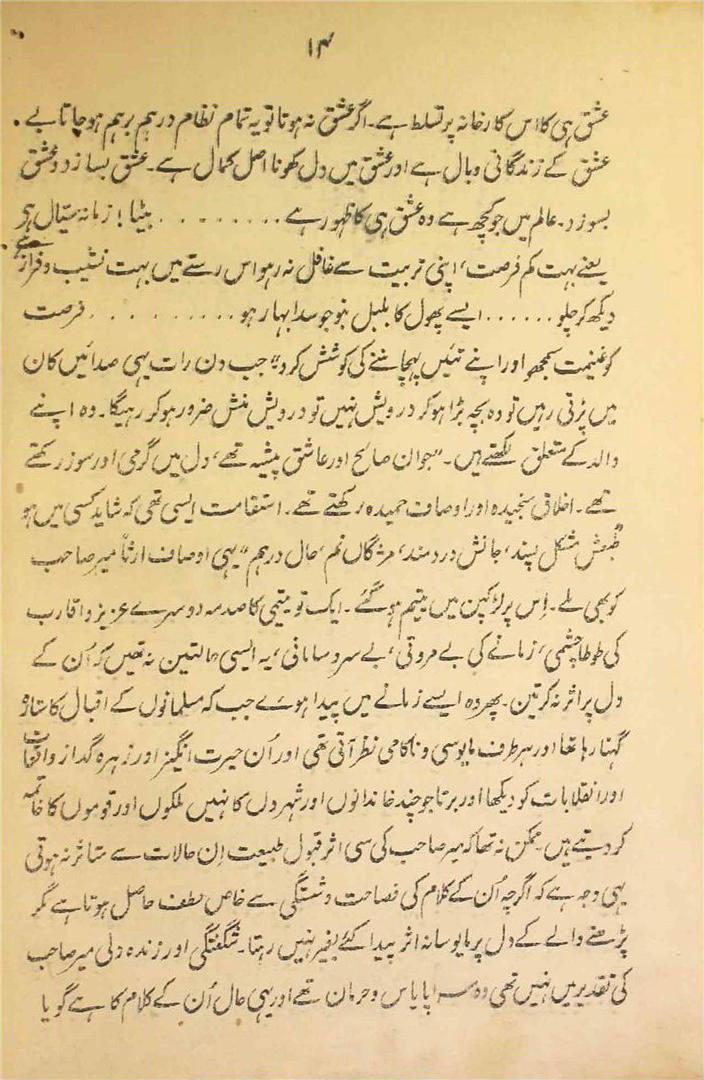 ۱۴
عشق ہی کا اس کارخانہ پر تسلط ہے۔ اگر عشق نہ ہوتا تو یہ تمام نظام درہم برہم ہوجاتا بے۔
عشق کے زندگانی وبال ہے اور عشق میں دل کھونا اصل کمال ہے۔ عشق بسازد و عشق
بسوزد۔ عالم میں جو کچھ ہے وہ عشق ہی کا ظہور ہے ......... بیٹا! زمانہ سیّال ہی
یعنے بہت کم فرصت، اپنی تربیت سے غافل نہ رہو اس رستے میں بہت نشیب و فراز ہے
دیکھ کر چلو ...... ایسے پھول کا بلبل بنو جو سدا بہار ہو .......... فرصت
کو غنیمت سمجھو اور اپنے تئیں پہچاننے کی کوشش کرو" جب دن رات یہی صدائیں کان
میں پڑتی رہیں تو وہ بچہ بڑا ہوکر درویش نہیں تو درویش منش ضرور ہوکر رہیگا۔ وہ اپنے
والد کے متعلق لکھتے ہیں۔ "جوان صالح اور عاشق پیشہ تھے، دل میں گرمی اور سوز رکھتے
تھے۔ اخلاق سنجیدہ اور اوصاف حمیدہ رکھتے تھے۔ استقامت ایسی تھی کہ شاید کسی میں ہو
طبعش مشکل پسند، جانش دردمند، مژگاں نم، حال درہم" یہی اوصاف ارثاً میر صاحب
کو بھی ملے۔ اِس پر لڑکپن میں یتیم ہو گئے۔ ایک تو یتیمی کا صدمہ دوسرے عزیز و اقارب
کی طوطاچشمی، زمانے کی بے مروتی، بے سروسامانی، یہ ایسی حالتین نہ تھیں کہ اُن کے
دل پر اثر نہ کرتین۔ پھر وہ ایسے زمانے میں پیدا ہوے جب کہ مسلمانوں کے اقبال کا ستارہ
گہنا رہا تھا اور ہر طرف مایوسی و ناکامی نظر آتی تھی اور اُن حیرت انگیز اور زہرہ گداز واقعات
اور انقلابات کو دیکھا اور برتا جو چند خاندانوں اور شہروں کا نہیں ملکوں اور قوموں کا خاتمہ
کر دیتے ہیں۔ ممکن نہ تھا کہ میر صاحب کی سی اثر قبول طبیعت اِن حالات سے متاثر نہ ہوتی
یہی وجہ ہے کہ اگرچہ اُن کے کلام کی فصاحت و شستگی سے خاص لطف حاصل ہوتا ہے مگر
پڑھنے والے کے دل پر مایوسانہ اثر پیدا کئے بغیر نہیں رہتا۔ شگفتگی اور زندہ دلی میر صاحب
کی تقدیر میں نہیں تھی وہ سراپا یاس و حرمان تھے اور یہی حال اُن کے کلام کا ہے گویا